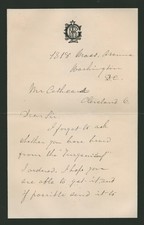 Washington
D.C.
Mr. Cathcart
Cleveland O.
Dear Sir
I forgot to ask
whether you have been
given the
I ordered. I hope you
are able to get it and
if possible send it to